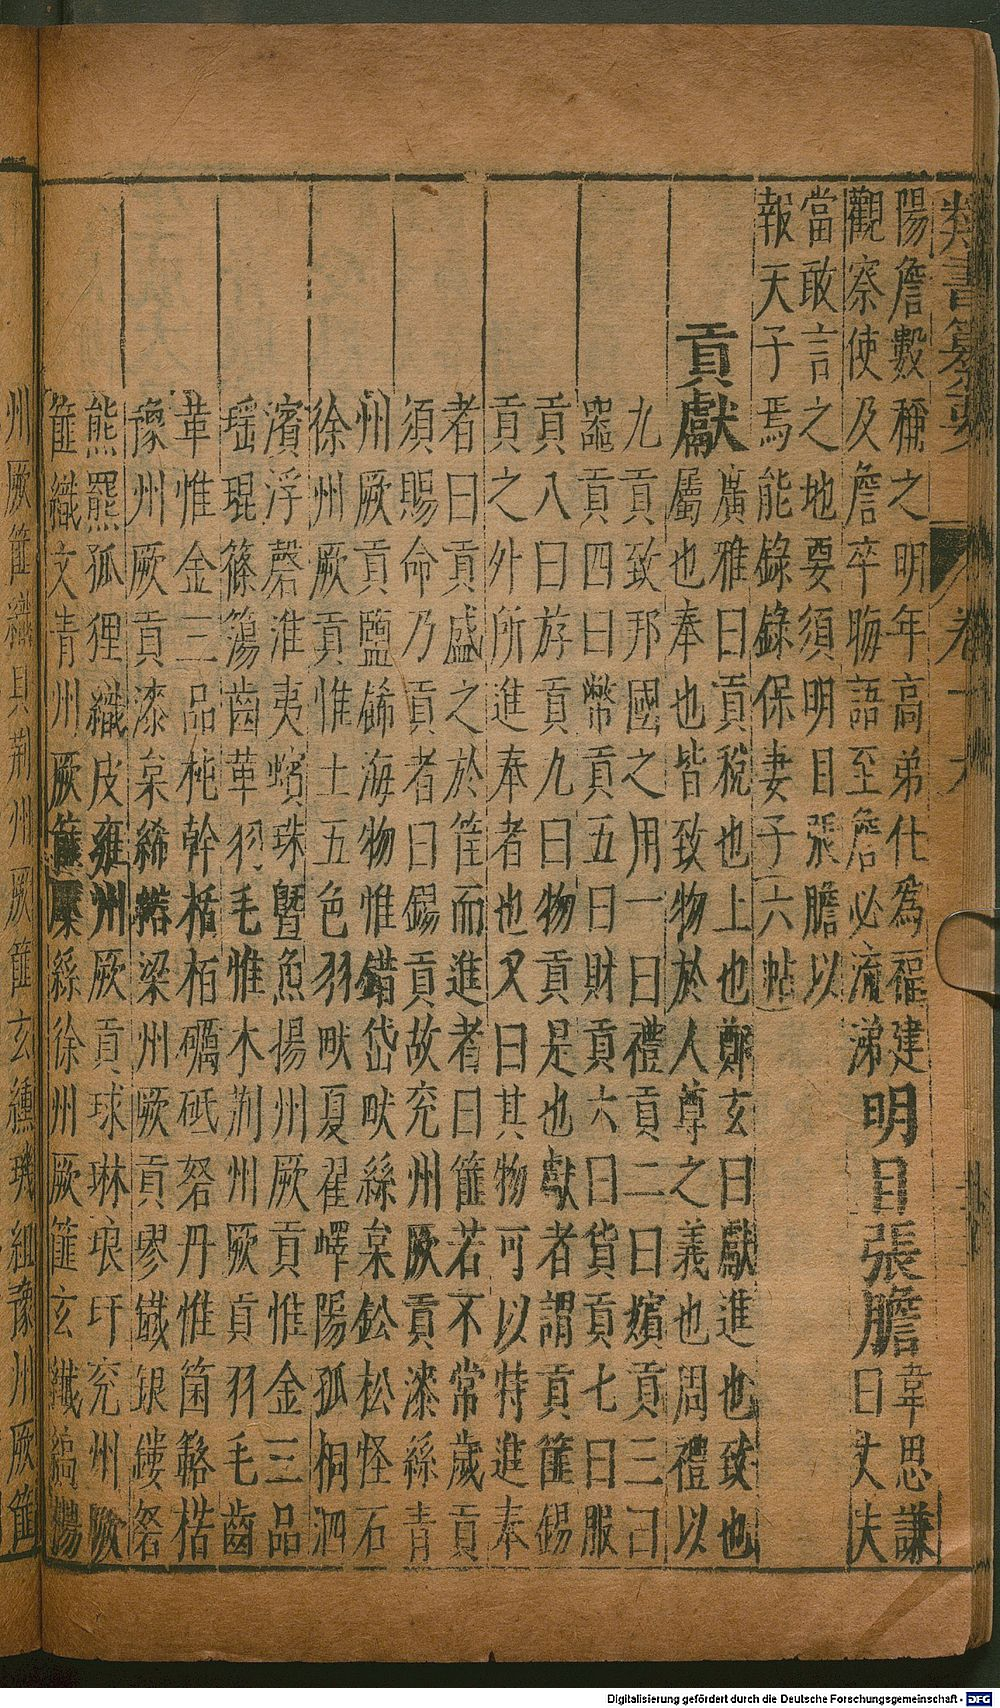 類書纂要 卷十六
陽詹數稱之明年高弟仕爲福建
觀察使及詹卒晦語至詹必流涕
明目張膽
韋思謙
曰丈夫
當敢言之地要須明目張膽以
報天子焉能錄錄保妻子六帖
貢獻
廣雅曰貢稅也上也鄭玄曰獻進也致也
屬也奉也皆致物於人尊之義也周禮以
九貢致邦國之用一曰禮貢二曰嬪貢三曰
器貢四曰幣貢五曰財貢六曰貨貢七曰服
貢八曰斿貢九曰物貢是也獻者謂貢篚錫
貢之外所進奉者也又曰其物可以特進奉
者曰貢盛之於筐而進者曰篚若不常歲貢
須賜命乃貢者曰錫貢故兖州厥貢漆絲青
州厥貢鹽絺海物惟錯岱畎絲枲鈆松怪石
徐州厥貢惟土五色羽畎夏翟嶧陽孤桐泗
濱浮磬淮夷蠙珠曁魚揚州厥貢惟金三品
瑶琨篠簜齒革羽毛惟木荆州厥貢羽毛齒
革惟金三品杶幹栝栢礪砥砮丹惟箘簵楛
豫州厥貢漆枲絺紵梁州厥貢璆鐵銀鏤砮
熊羆狐狸織皮雍州厥貢球琳琅玕兖州厥
篚織文青州厥篚檿絲徐州厥篚玄纎縞揚
州厥篚織貝荆州厥篚玄纁璣組豫州厥篚